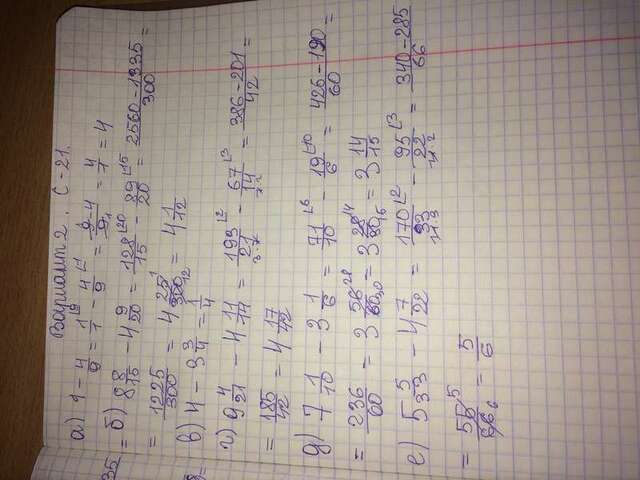 Вариант 2. С-21.
а) 1 - 4/9 = 1/1 - 4/9 = 9-4/9 = 4/1 = 4
б) 8 8/15 - 4 9/20 = 128/15 - 89/20 = 2560-1335/300 =
= 1225/300 = 4 25/300 = 4 1/12
в) 4 - 3 3/4 = 1/4
г) 9 4/21 - 4 11/14 = 193/21 - 67/14 = 386-201/42 =
= 185/42 = 4 17/42
д) 7 1/10 - 3 1/6 = 71/10 - 19/6 = 426-190/60 =
= 236/60 = 3 56/60 = 3 28/30 = 3 14/15
е) 5 5/33 - 4 7/22 = 170/33 - 95/22 = 340-285/66
= 55/66 = 5/6